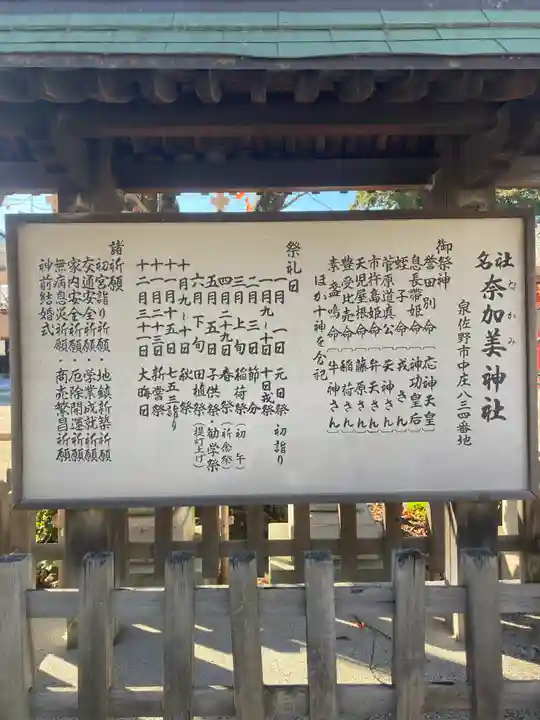 名社 奈加美神社
なかみ
泉佐野市中庄八三四番地
御祭神
誉田別命（応神天皇）
息長帯姫命（神功皇后）
蛭子命（戎さん）
菅原道真公（天神さん）
市杵島姫命（弁天さん）
天児屋根命（藤原さん）
豊受比売命（稲荷さん）
素盞鳴命（牛神さん）
ほか十神を合祀
祭礼日
一月一日 元日祭 初詣り
一月九～十日 十日戎祭
二月三日 節分
三月上旬 稲荷祭（初午）
四月二九日 春祭（祈念祭）
五月五日 子供祭・勧学祭
六月下旬 田植祭（提灯上げ）
十月九～十日 秋祭
十一月 七五三詣り
十一月二三日 新嘗祭
十二月三十一日 大晦日
諸祈願
初宮詣り祈願・地鎮祈願
交通安全祈願・学業成就祈願
家内安全祈願・厄除開運祈願
無病息災祈願・商売繁昌祈願
神前結婚式